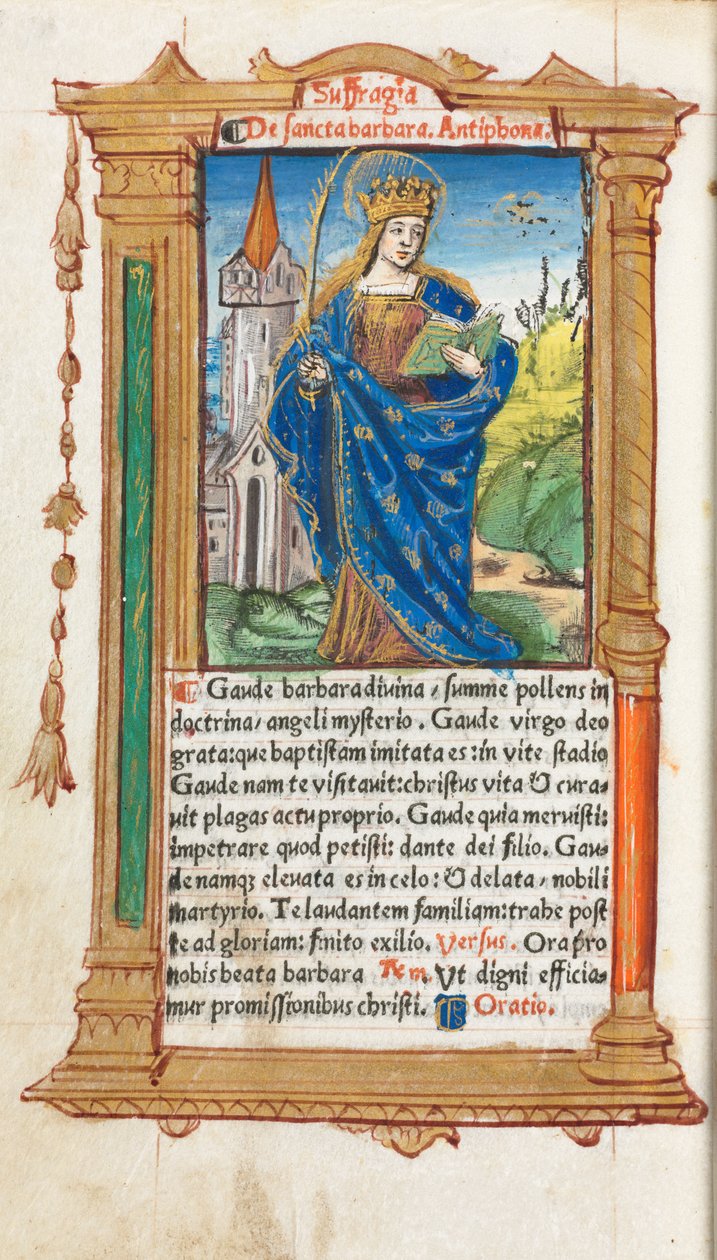 Suffragia
De sancta barbara. Antiphona.
Gaude barbara diuina / summe pollens in
doctrina / angeli mysterio. Gaude virgo deo
grata: que baptistam imitata es: in vite stadio
Gaude nam te visitauit: christus vita & cura-
uit plagas actu proprio. Gaude quia meruisti:
impetrare quod petisti: dante dei filio. Gau-
de namqꝫ eleuata es in celo: & delata / nobili
martyrio. Te laudantem familiam: trahe post
te ad gloriam: finito exilio. Versus. Ora pro
nobis beata barbara Vt digni efficia-
mur promissionibus christi. Oratio.